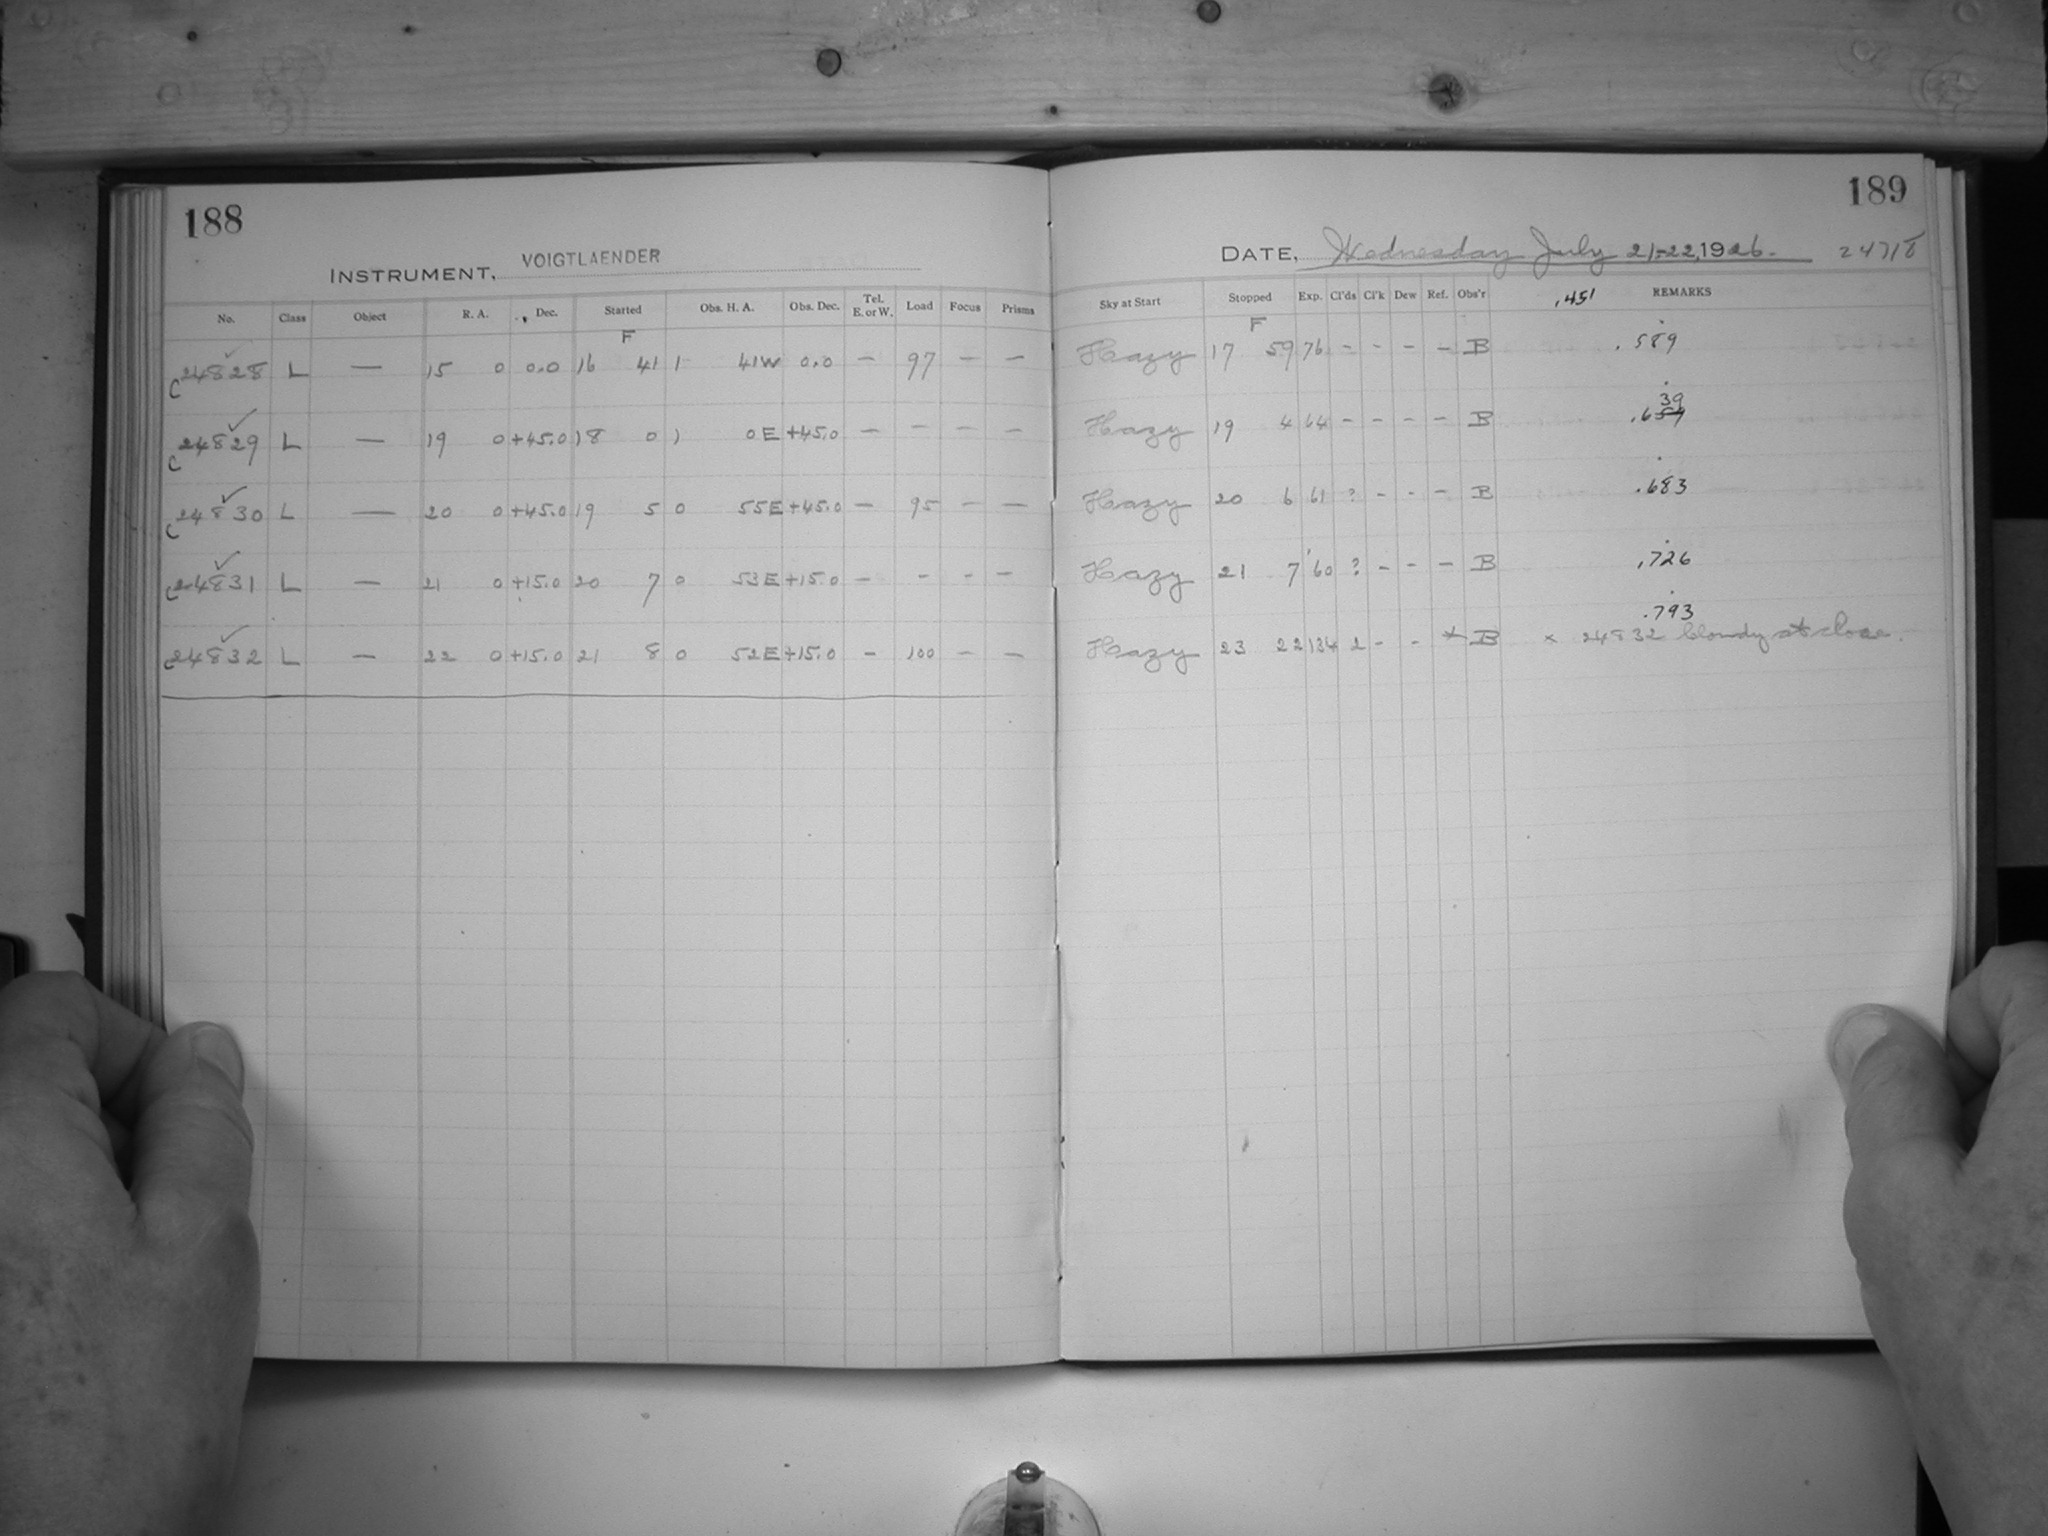 188
INSTRUMENT, VOIGTLAENDER
No. Class Object R. A. Dec. Started Obs. H. A. Obs. Dec. Tel. E. or W. Load Focus Prisms
F
C 24828 ✓ L — 15 0 0.0 16 41 1 41W 0.0 — 97 — —
C 24829 ✓ L — 19 0 +45.0 18 0 1 0E +45.0 — — — —
C 24830 ✓ L — 20 0 +45.0 19 5 0 55E +45.0 — 95 — —
C 24831 ✓ L — 21 0 +15.0 20 7 0 53E +15.0 — - - —
C 24832 ✓ L — 22 0 +15.0 21 8 0 52E +15.0 - 100 — —
189
DATE, Wednesday July 21-22, 1926.
Sky at Start Stopped Exp. Cl'ds Cl'k Dew Ref. Obs'r .451 REMARKS
F
Hazy 17 59 76 - - - - B .589
39
Hazy 19 4 64 - - - - B .659
Hazy 20 6 61 ? - - - B .683
Hazy 21 7 60 ? - - - B .726
.793
Hazy 23 22 134 2 - - x B x 24832 cloudy at close.